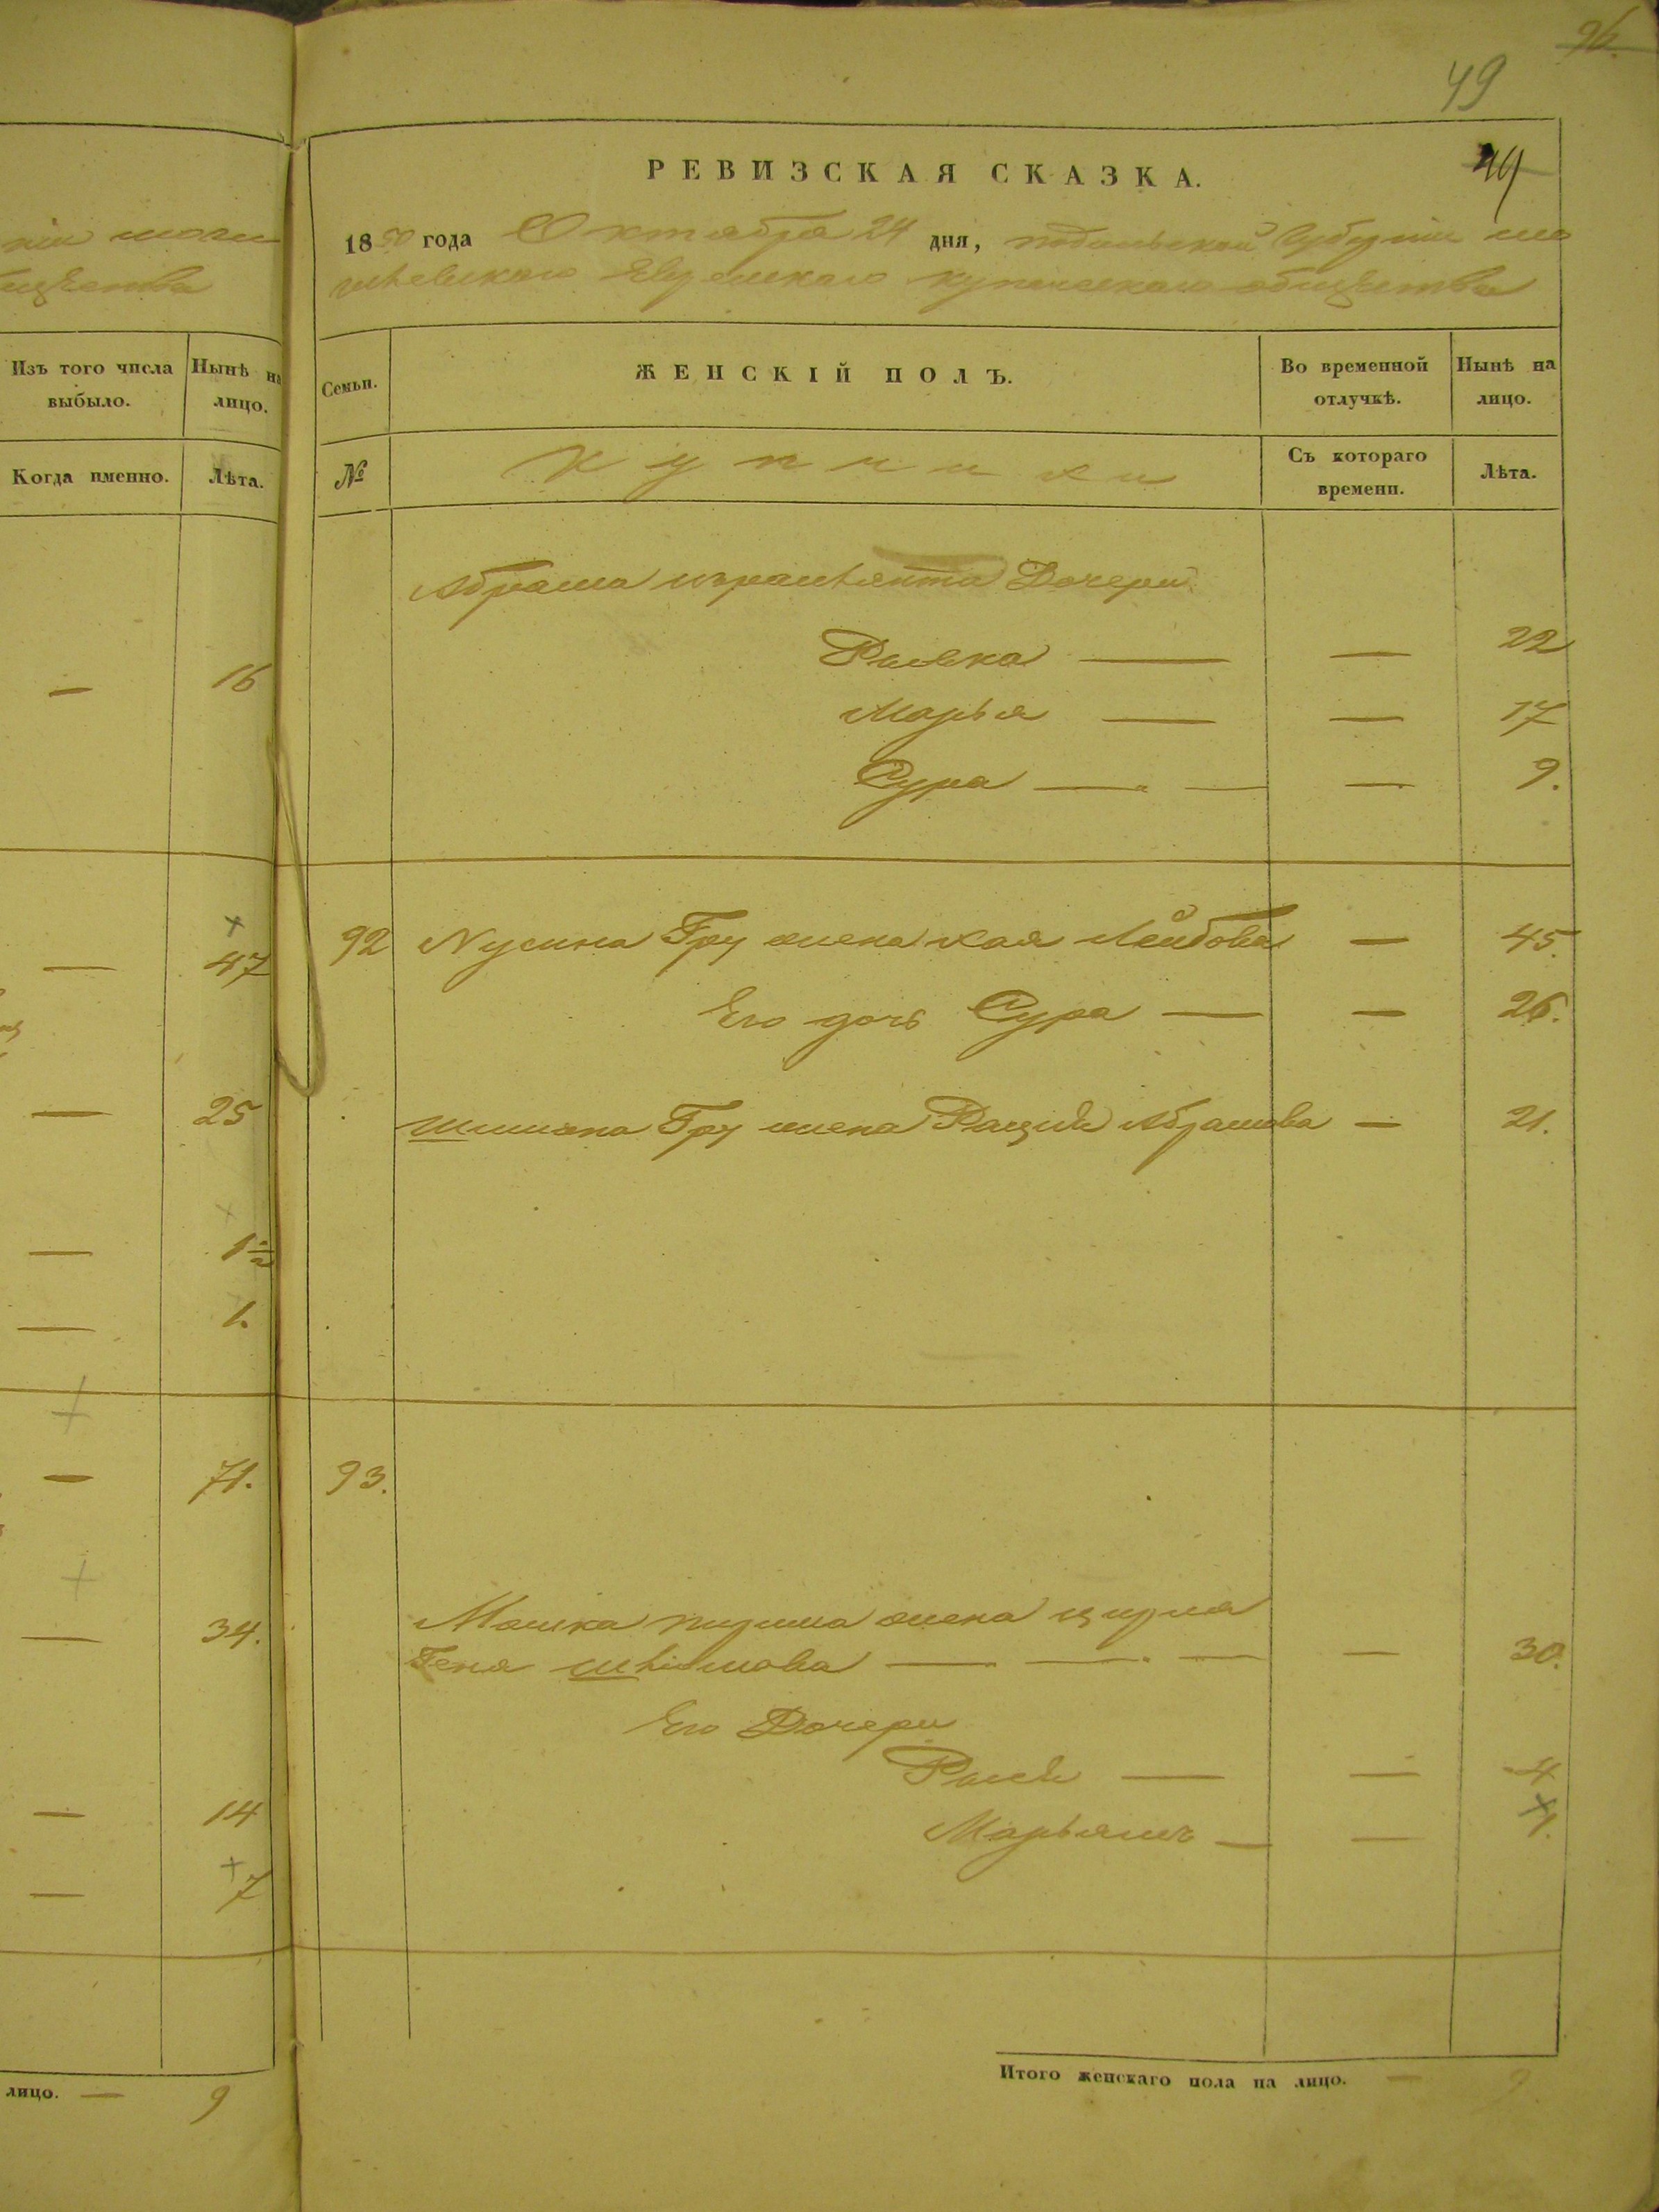 96.
49
РЕВИЗСКАЯ СКАЗКА.
49
1850 года Октября 24 дня, подольской Губернии мо
гилевского Еврейского купеческаго общества
ніи моги
бщества
Изъ того числа выбыло.
Нынѣ на лицо.
Когда именно.
Лѣта.
Семьи.
ЖЕНСКІЙ ПОЛЪ.
Во временной отлучкѣ.
Нынѣ на лицо.
№
Купчихи
Съ котораго времени.
Лѣта.
Абрама Дочери
— 16
Рывка — — 22
Марья — — 17
Сура — — — 9.
— 47
92 Нусина Гру жена хая Лейбова — 45.
Его дочь Сура — — 26.
— 25
Шимона Гру жена Абрамова — 21.
— 1½
— 1.
— 71.
93.
— 34.
Мошка жена цирля
Геня — — — — 30.
Его Дочери
— — 4
— 14
Марьямъ — — 1.
— 7
лицо. — 9
Итого женскаго пола на лицо. — 9